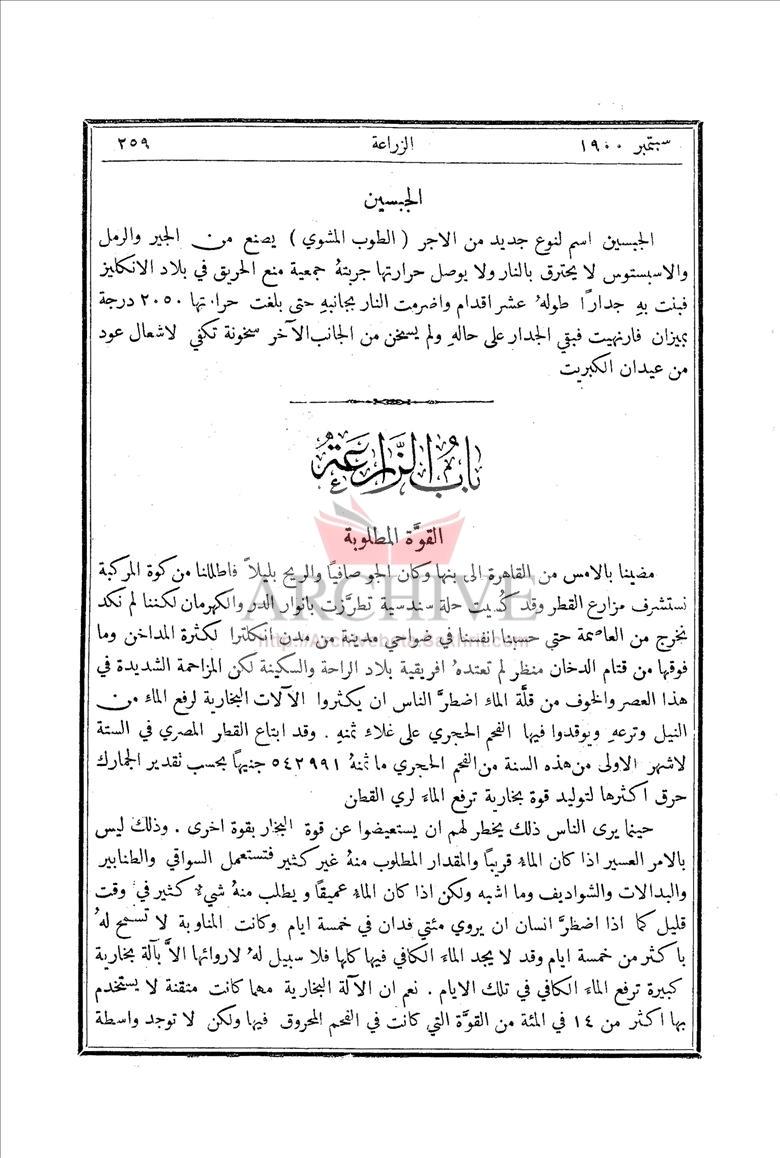 سبتمبر ١٩٠٠ الزراعة ٢٥٩
الجبسين
الجبسين اسم لنوع جديد من الاجر (الطوب المشوي) يصنع من الجير والرمل
والاسبستوس لا يحترق بالنار ولا يوصل حرارتها جربتهُ جمعية منع الحريق في بلاد الانكليز
فبنت بهِ جدارًا طولهُ عشر اقدام واضرمت النار بجانبهِ حتى بلغت حرارتها ٢٠٥٠ درجة
بميزان فارنهيت فبقي الجدار على حالهِ ولم يسخن من الجانب الآخر سخونة تكفي لاشعال عود
من عيدان الكبريت
باب الزراعة
القوَّة المطلوبة
مضينا بالامس من القاهرة الى بنها وكان الجو صافيًا والريح بليلاً فاطللنا من كوة المركبة
نستشرف مزارع القطر وقد كُسيت حلة سندسية تطرَّزت بانوار الدر والكهرمان لكننا لم نكد
نخرج من العاصمة حتى حسبنا انفسنا في ضواحي مدينة من مدن انكلترا لكثرة المداخن وما
فوقها من قتام الدخان منظر لم تعتدهُ افريقية بلاد الراحة والسكينة لكن المزاحمة الشديدة في
هذا العصر والخوف من قلَّة الماء اضطرَّ الناس ان يكثروا الآلات البخارية لرفع الماء من
النيل وترعهِ ويوقدوا فيها الفحم الحجري على غلاء ثمنهِ . وقد ابتاع القطر المصري في الستة
لاشهر الاولى من هذه السنة من الفحم الحجري ما ثمنهُ ٥٤٢٩٩١ جنيهًا بحسب تقدير الجمارك
حرق اكثرها لتوليد قوة بخارية ترفع الماء لري القطن
حينما يرى الناس ذلك يخطر لهم ان يستعيضوا عن قوة البخار بقوة اخرى . وذلك ليس
بالامر العسير اذا كان الماء قريبًا والمقدار المطلوب منهُ غير كثير فتستعمل السواقي والطنابير
والبدالات والشواديف وما اشبه ولكن اذا كان الماء عميقًا و يطلب منهُ شيء كثير في وقت
قليل كما اذا اضطرَّ انسان ان يروي مئتي فدان في خمسة ايام وكانت المناوبة لا تسمح لهُ
باكثر من خمسة ايام وقد لا يجد الماء الكافي فيها كلها فلا سبيل لهُ لاروائها الاَّ بآلة بخارية
كبيرة ترفع الماء الكافي في تلك الايام . نعم ان الآلة البخارية مهما كانت متقنة لا يستخدم
بها اكثر من ١٤ في المئة من القوَّة التي كانت في الفحم المحروق فيها ولكن لا توجد واسطة
ARCHIVE